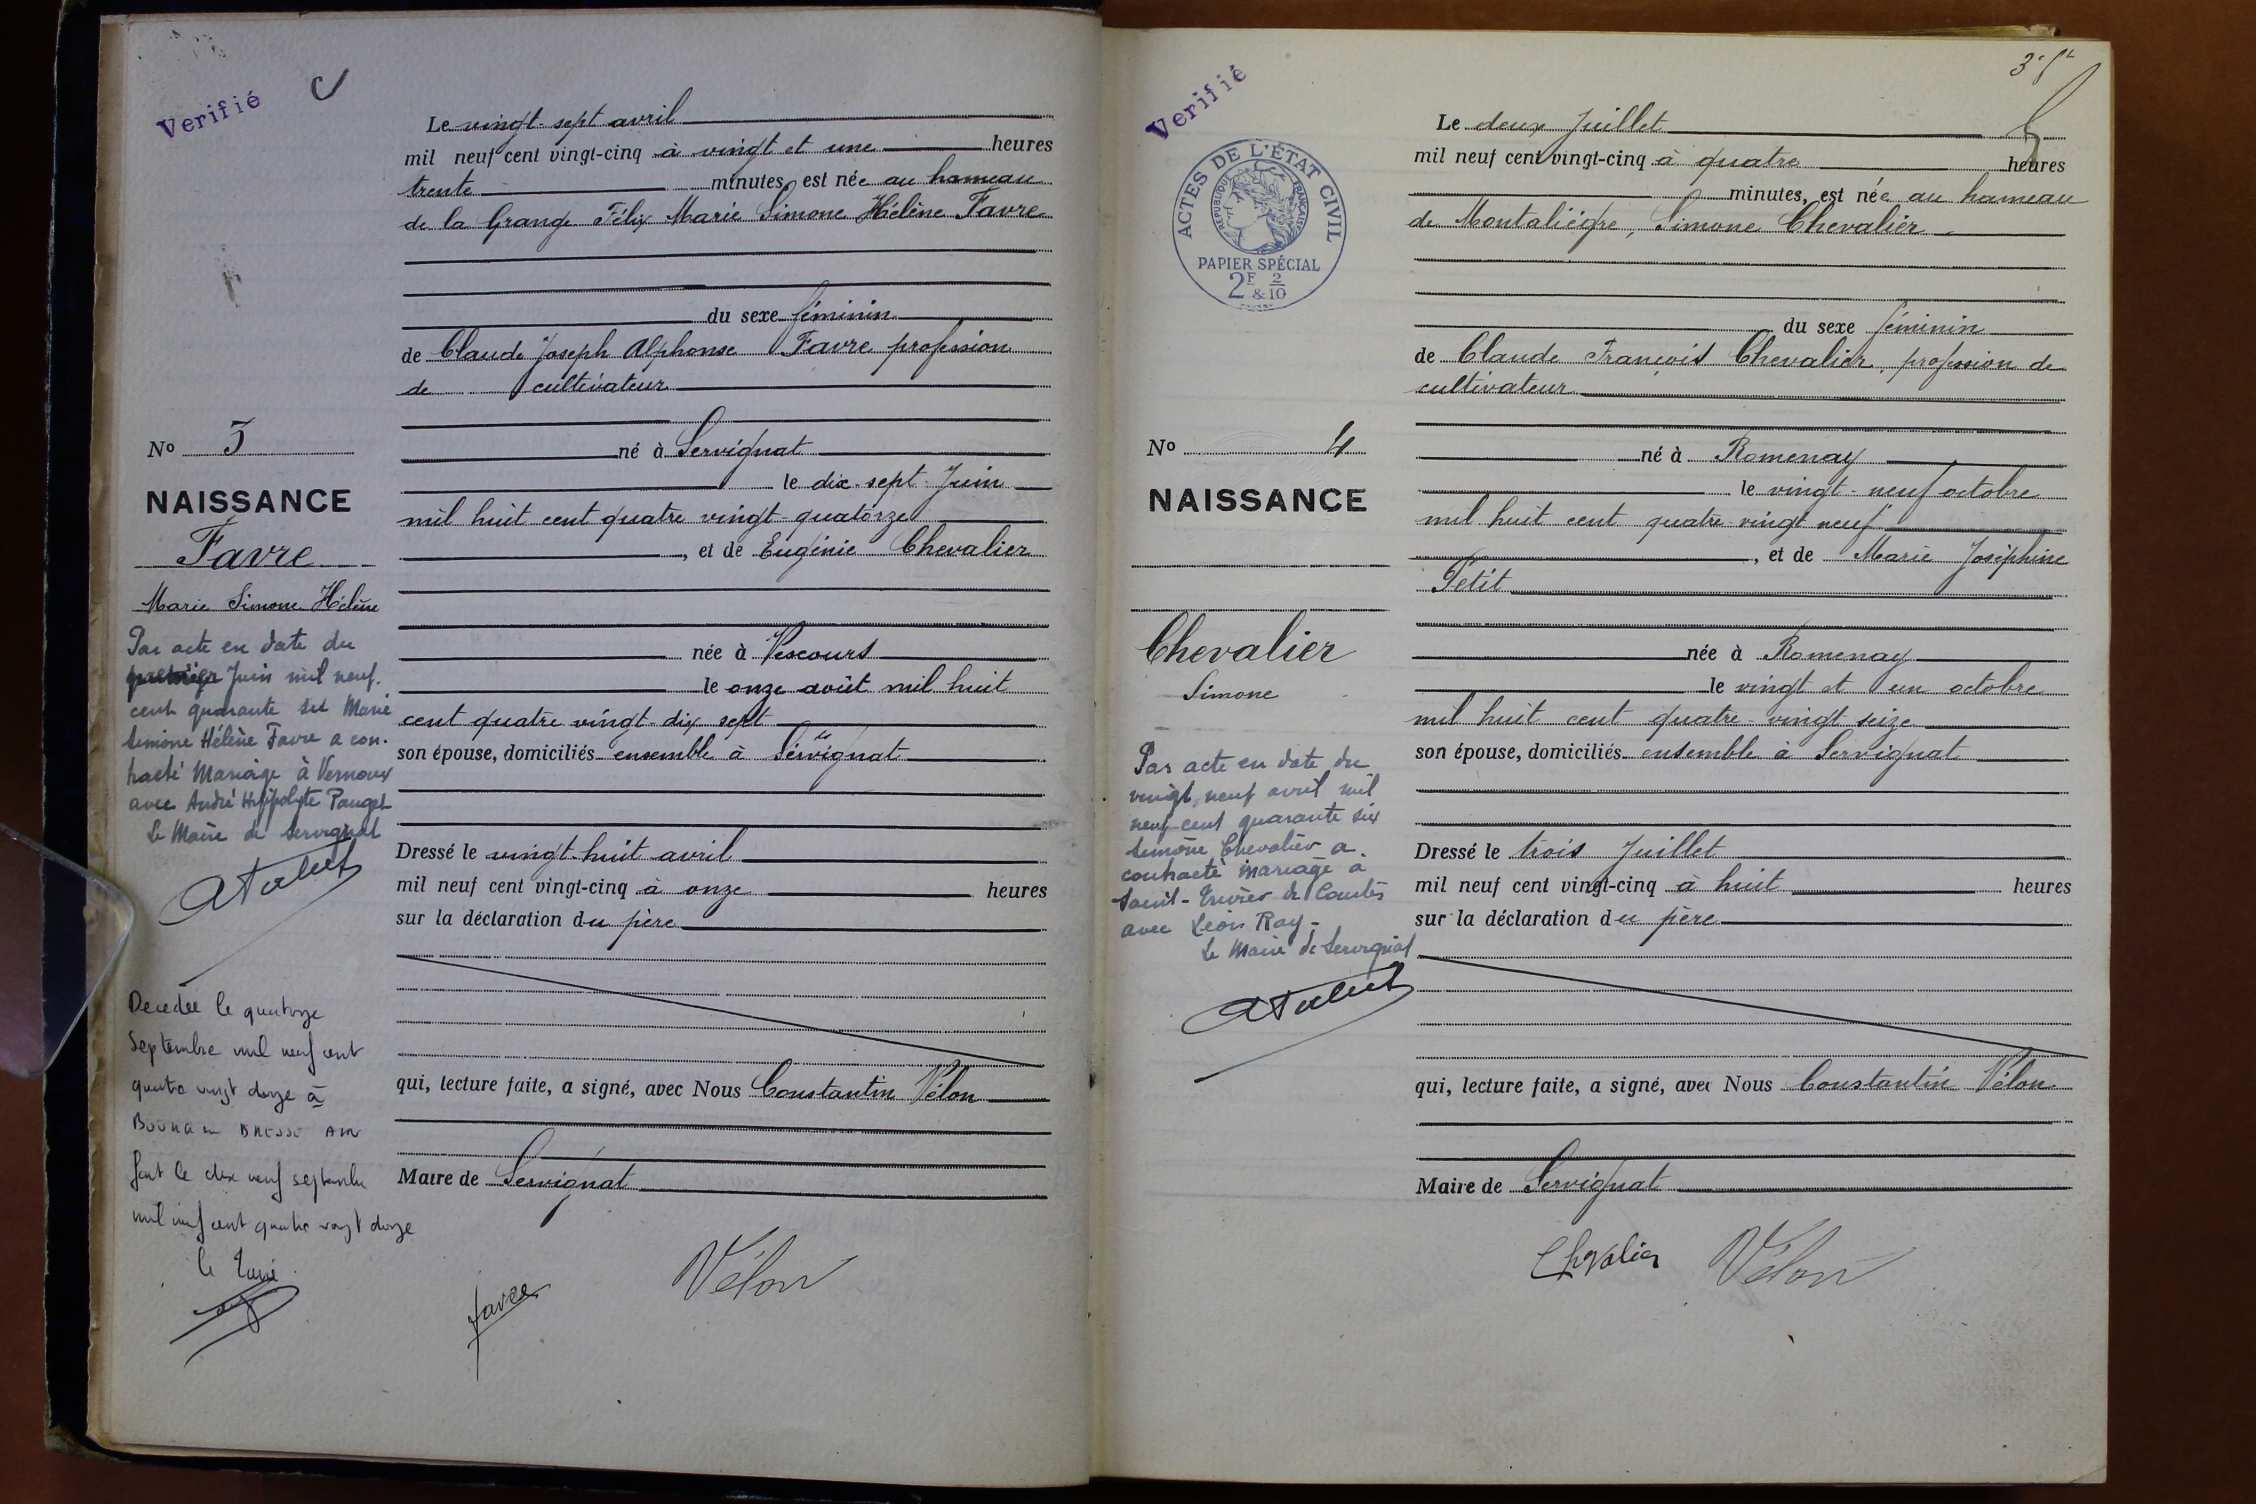 Verifié
Le vingt-sept avril
mil neuf cent vingt-cinq à vingt et une heures
trente minutes, est née au hameau
de la Grange Félix Marie Simone Hélène Favre
du sexe féminin
de Claude Joseph Alphonse Favre profession
de cultivateur
né à Servignat
le dix-sept Juin
mil huit cent quatre vingt-quatorze
, et de Eugénie Chevalier
née à Vescours
le onze août mil huit
cent quatre vingt-dix sept
son épouse, domiciliés ensemble à Servignat
Dressé le vingt-huit avril
mil neuf cent vingt-cinq à onze heures
sur la déclaration du père
qui, lecture faite, a signé, avec Nous Constantin Vélon
Maire de Servignat
favre
Vélon
No 3
NAISSANCE
Favre
Marie Simone Hélène
Par acte en date du
Juin mil neuf
cent quarante six Marie
Simone Hélène Favre a con-
tracté Mariage à Vernoux
avec André Hippolyte Pauget
Le Maire de Servignat
Décédée le quatorze
Septembre mil neuf cent
quatre vingt douze à
BOURG en BRESSE AIN
fait le dix neuf septembre
mil neuf cent quatre vingt douze
le Maire
Verifié
ACTES DE L'ÉTAT CIVIL
RÉPUBLIQUE FRANÇAISE
PAPIER SPÉCIAL
2F & 2/10
Le deux Juillet
mil neuf cent vingt-cinq à quatre heures
minutes, est née au hameau
de Montaliègre, Simone Chevalier
du sexe féminin
de Claude François Chevalier, profession de
cultivateur
né à Romenay
le vingt-neuf octobre
mil huit cent quatre vingt neuf
, et de Marie Joséphine
Petit
née à Romenay
le vingt et un octobre
mil huit cent quatre-vingt seize
son épouse, domiciliés ensemble à Servignat
Dressé le trois Juillet
mil neuf cent vingt-cinq à huit heures
sur la déclaration du père
qui, lecture faite, a signé, avec Nous Constantin Vélon
Maire de Servignat
Chevalier
Vélon
No 4
NAISSANCE
Chevalier
Simone
Par acte en date du
vingt neuf avril mil
neuf cent quarante six
Simone Chevalier a
contracté mariage à
Saint-Trivier de Courtes
avec Léon Ray-
Le Maire de Servignat